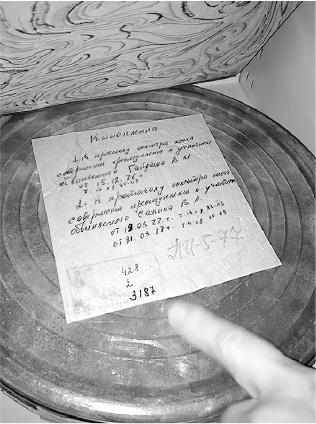 Кинопленка
1. К протоколу осмотра места
совершения преступления с участием
обвиняемого Гайдака В. М.
от 15.12.76 г.
2. К протоколу осмотра места
совершения преступления с участием
обвиняемого Саника В. А.
от
от
АИ-5-77
428
2
3187